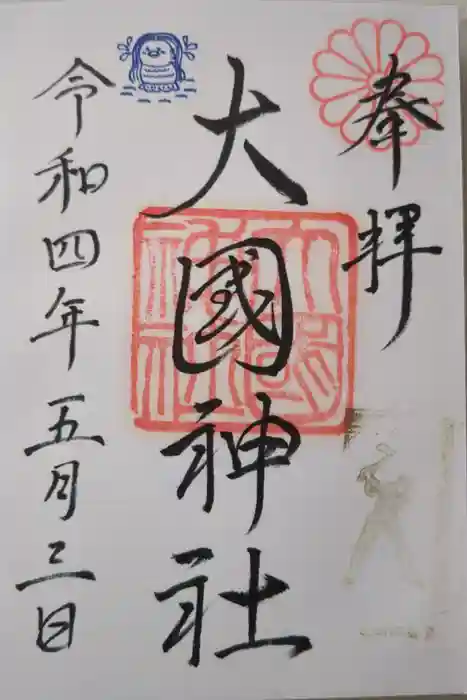 奉拝
大國神社
令和四年五月三日